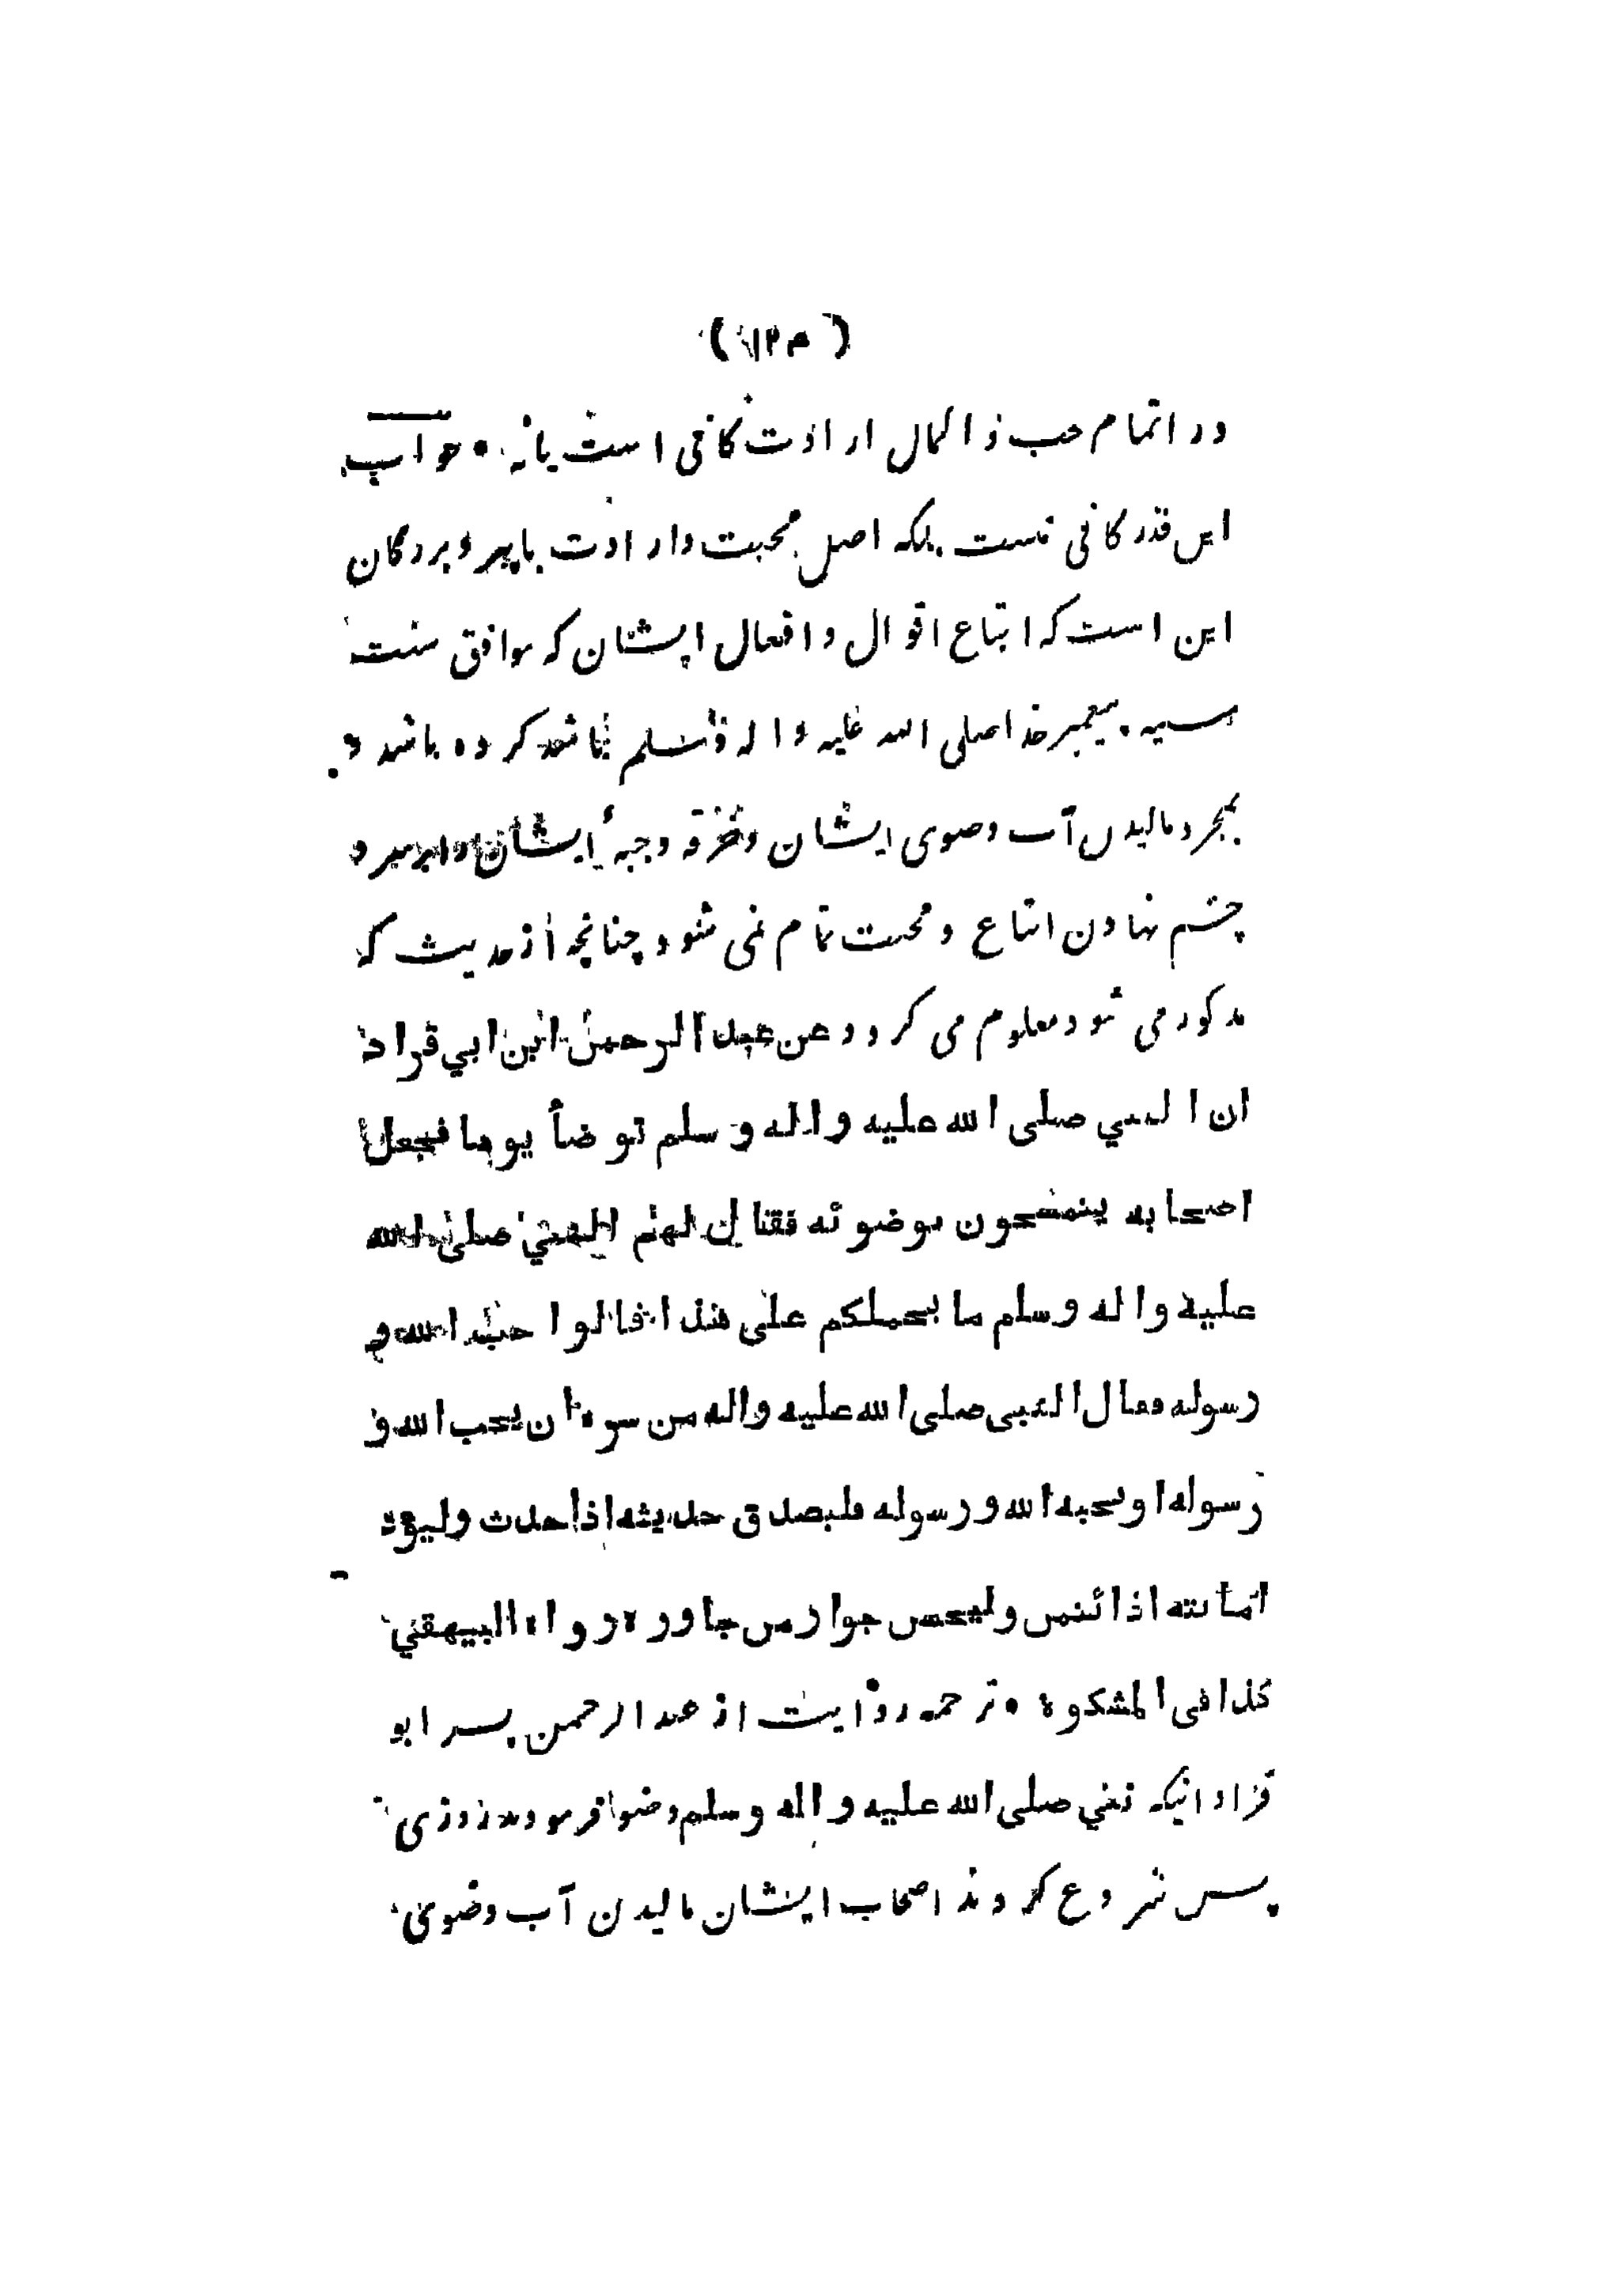 ( ۱۲۴ )
در اتمام حب و اکمال ارادت کافی است یا نه • جواب
این قدر کافی نیست بلکه اصل محبت و ارادت با پیر و بزرگان
این است که اتباع اقوال و افعال ایشان که موافق سنت
سنیه پیغمبر خدا صلی الله علیه و اله و سلم باشد کرده باشد و
بمجرد مالیدن آب وضوی ایشان و خرقه و جبهٔ ایشان را بر سر و
چشم نهادن اتباع و محبت تمام نمی شود چنانچه از حدیث که
مذکور می شود معلوم می گردد عن عبد الرحمن ابن ابي قراد
ان النبي صلى الله عليه واله وسلم توضأ يوما فجعل
اصحابه يتمسحون بوضوئه فقال لهم النبي صلى الله
عليه واله وسلم ما يحملكم على هذا قالوا حب الله و
رسوله فقال النبي صلى الله عليه واله من سره ان يحب الله و
رسوله او يحبه الله ورسوله فليصدق حديثه اذا حدث وليؤد
امانته اذا ائتمن وليحسن جوار من جاوره رواه البيهقي
كذا فى المشكوة • ترجمه روایت از عبد الرحمن پسر ابو
قراد انیکه نبي صلى الله عليه واله وسلم وضو فرمودند روزی
پس شروع کردند اصحاب ایشان مالیدن آب وضوی